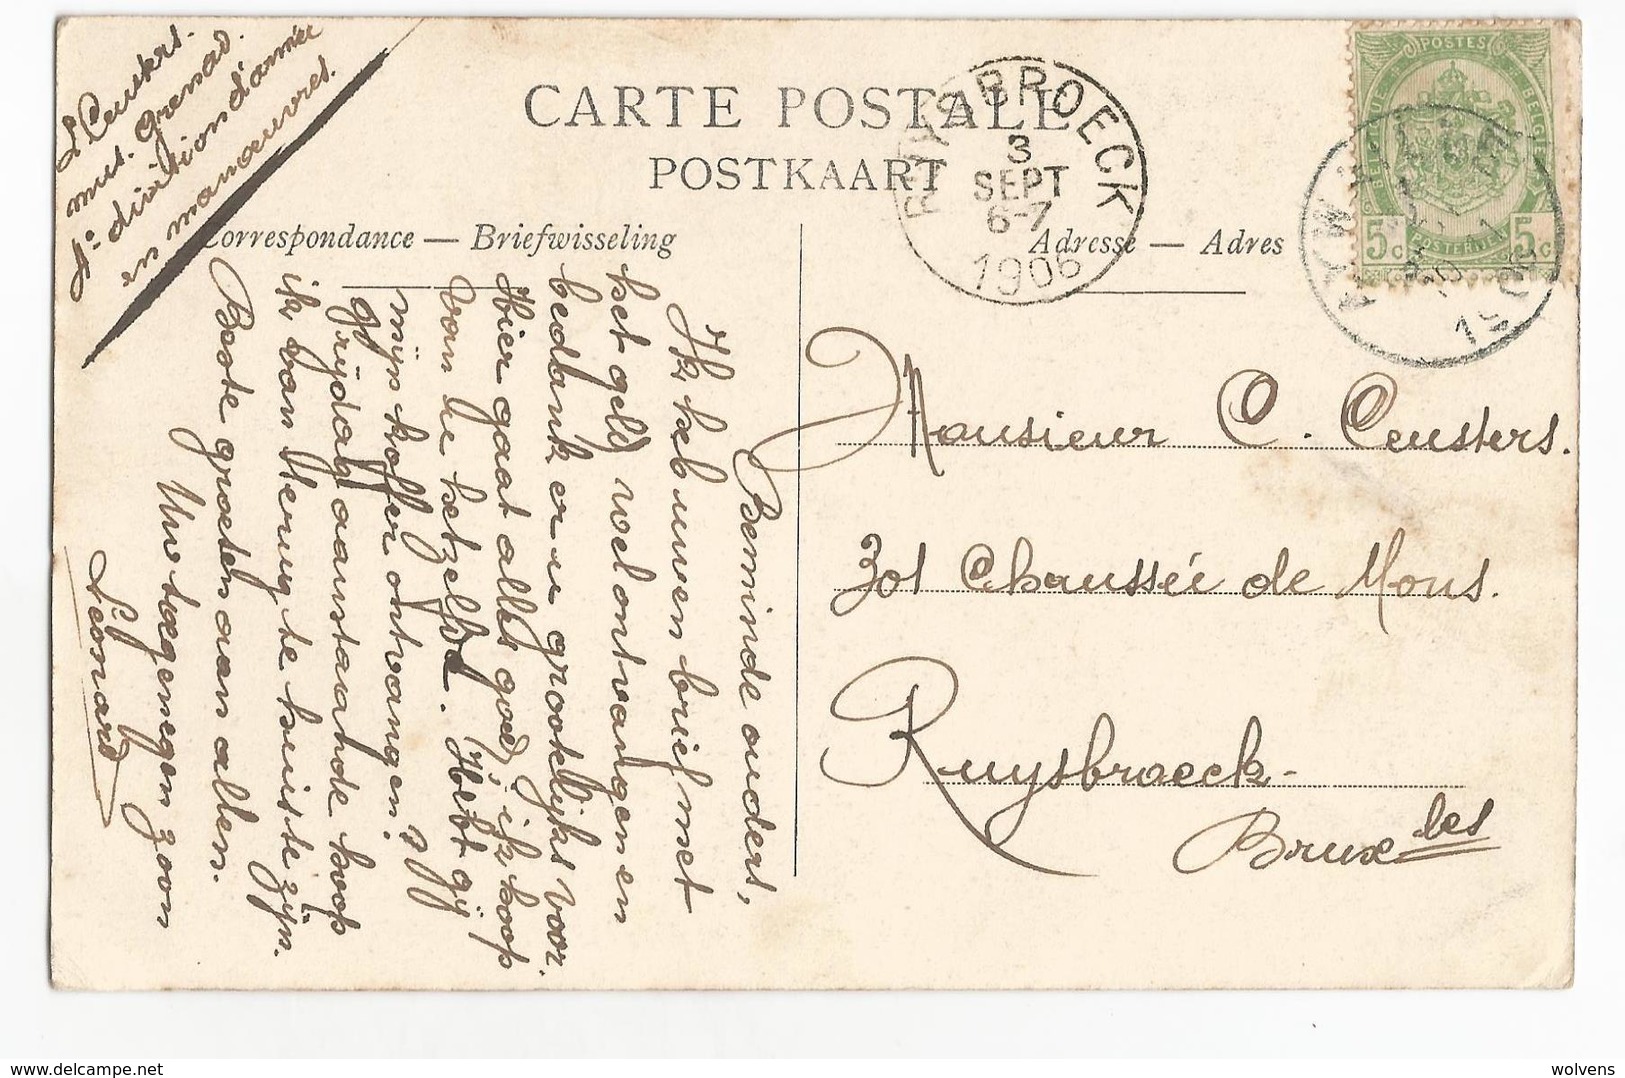 L Ceusters.
mus. Grenad.
4e division d'armée
en manœuvres.
CARTE POSTALE
POSTKAART
Correspondance — Briefwisseling
Adresse — Adres
RUYSBROECK
3
SEPT
6-7
1906
AYWAILLE
POSTES
BELGIQUE
BELGIE
5c POSTERIJEN 5c
Beminde ouders,
Ik heb uwen brief met
het geld wel ontvangen en
bedank er u grootelijks voor.
Hier gaat alles goed, ik hoop
van u hetzelfde. Hebt gij
mijn koffer ontvangen?
Vrijdag aanstaande hoop
ik van terug te huis te zijn.
Beste groeten aan allen.
Uw toegenegen zoon
Léonard
Monsieur C. Ceusters.
301 Chaussée de Mons.
Ruysbroeck-
Bruxelles
wolvens